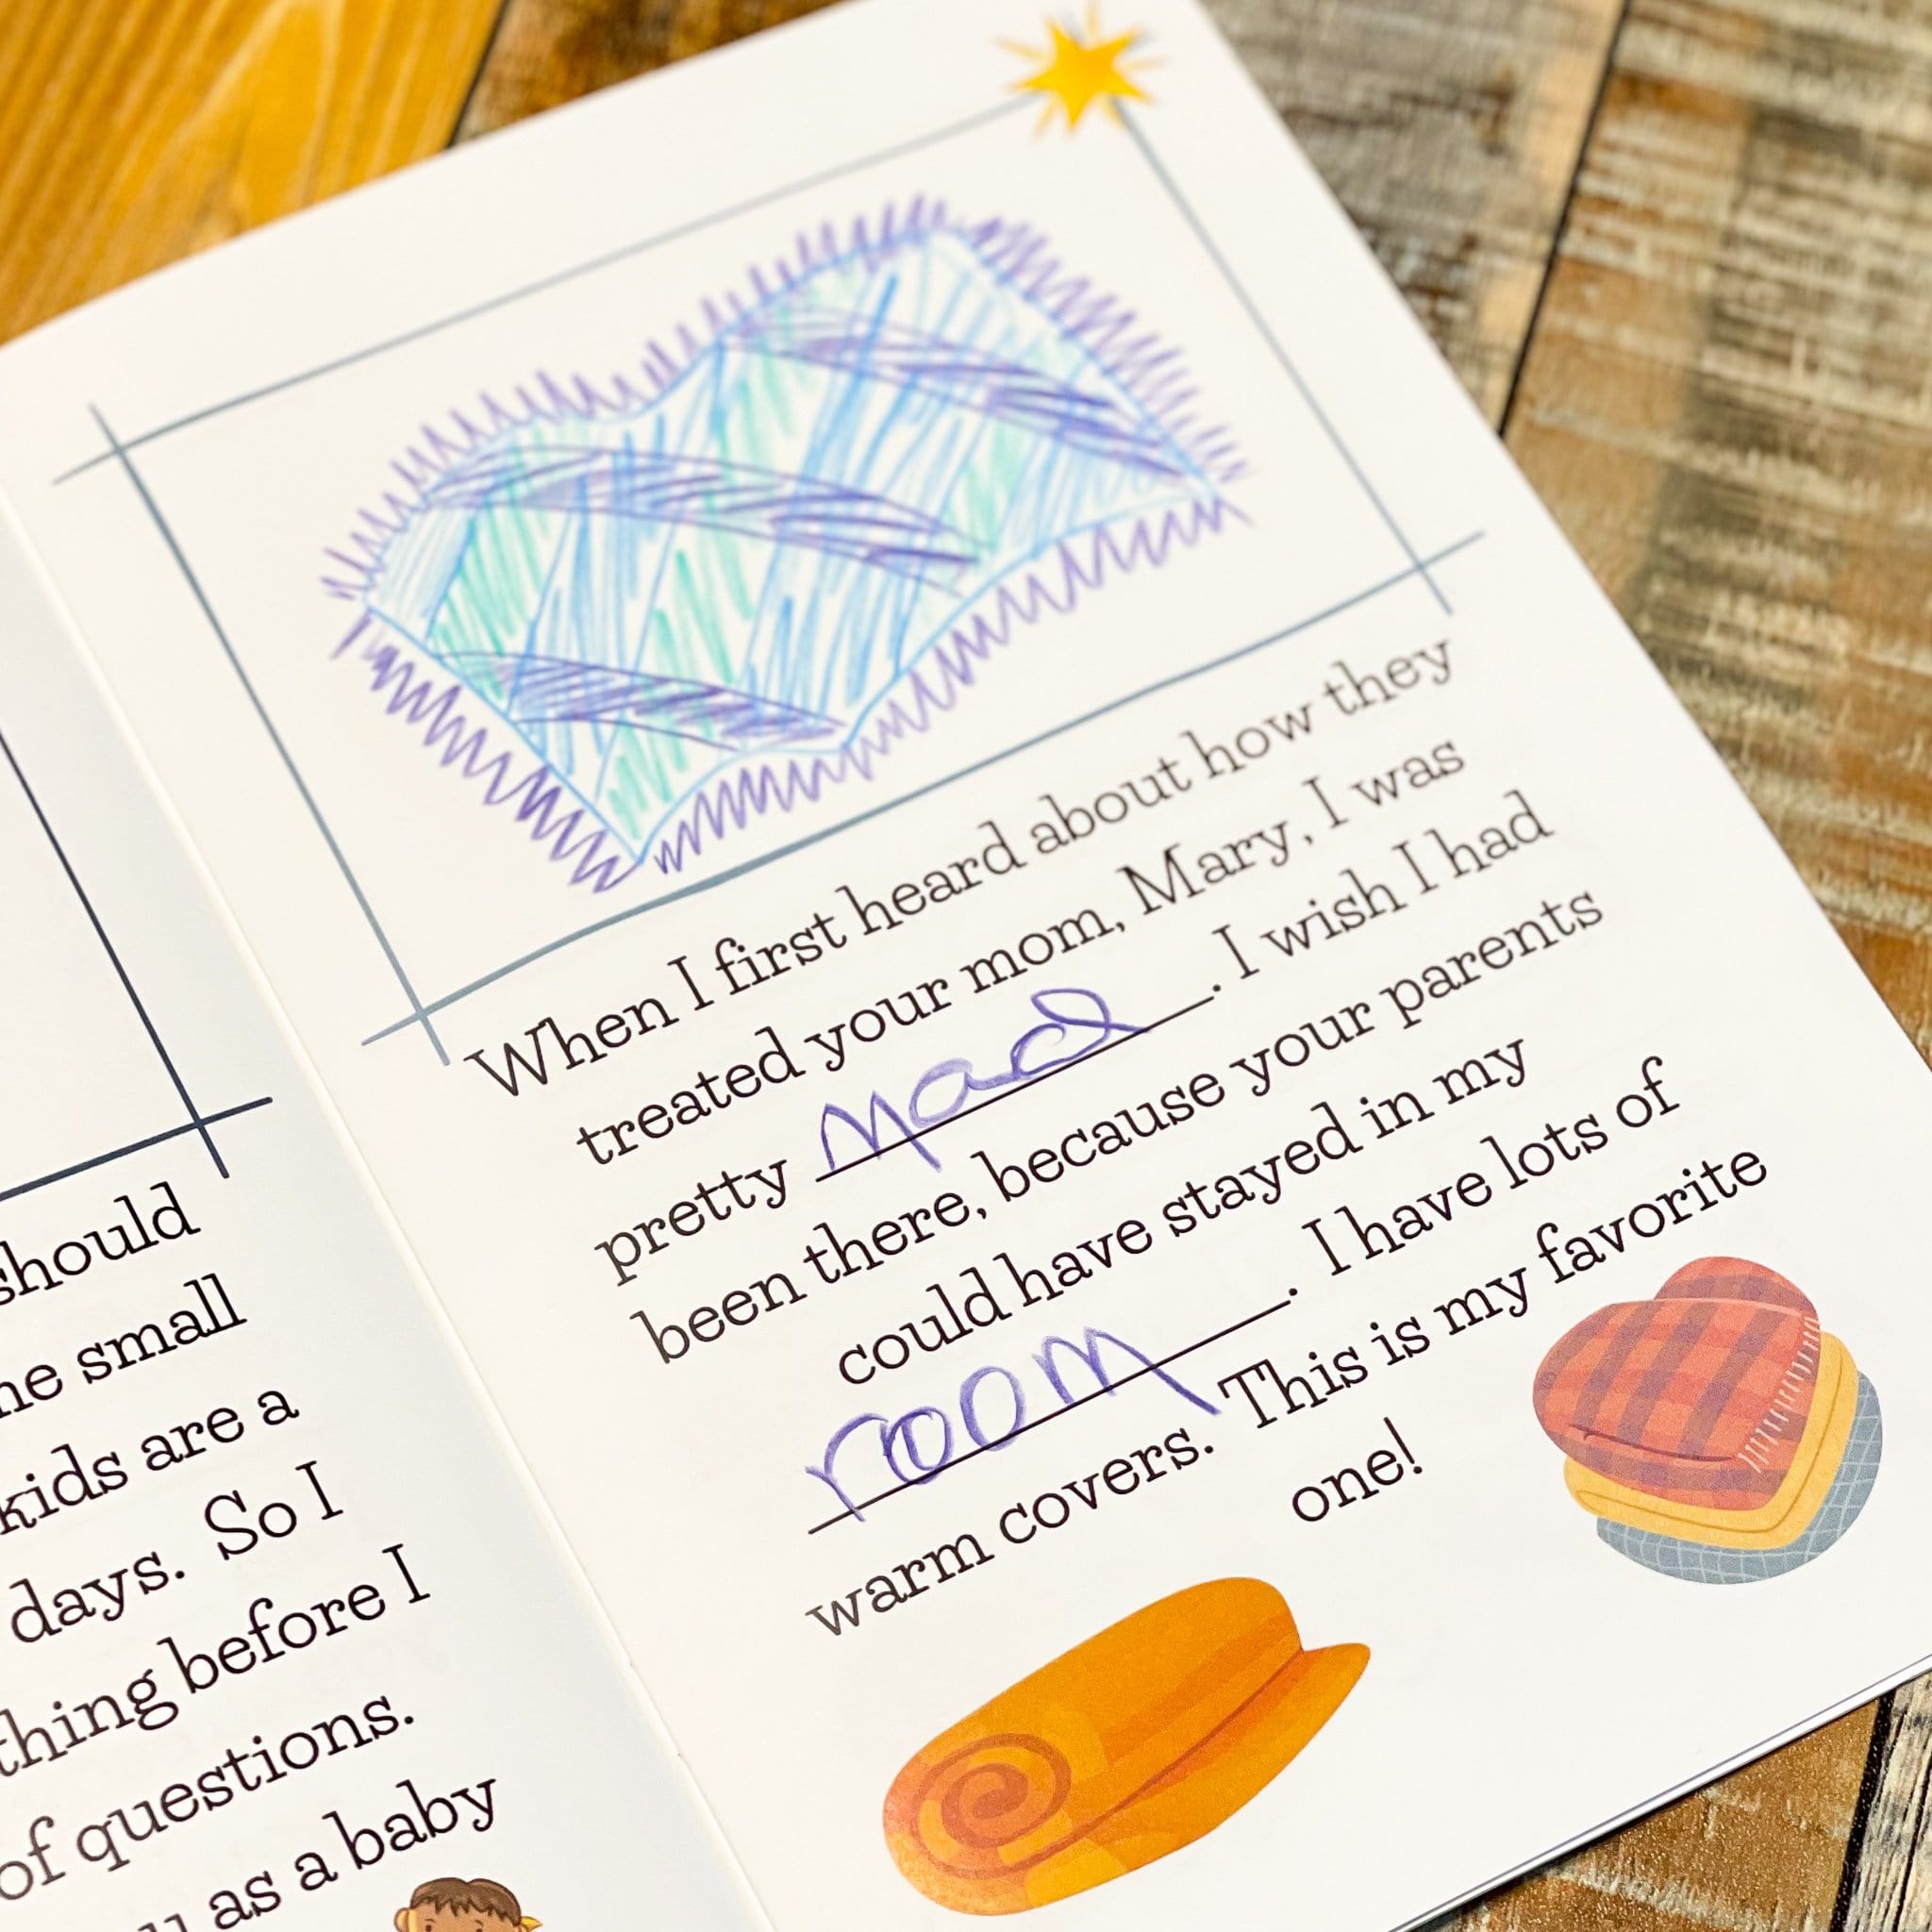 should
small
kids are a
days. So I
thing before I
of questions.
as a baby
When I first heard about how they
treated your mom, Mary, I was
pretty mad. I wish I had
been there, because your parents
could have stayed in my
room. I have lots of
warm covers. This is my favorite
one!